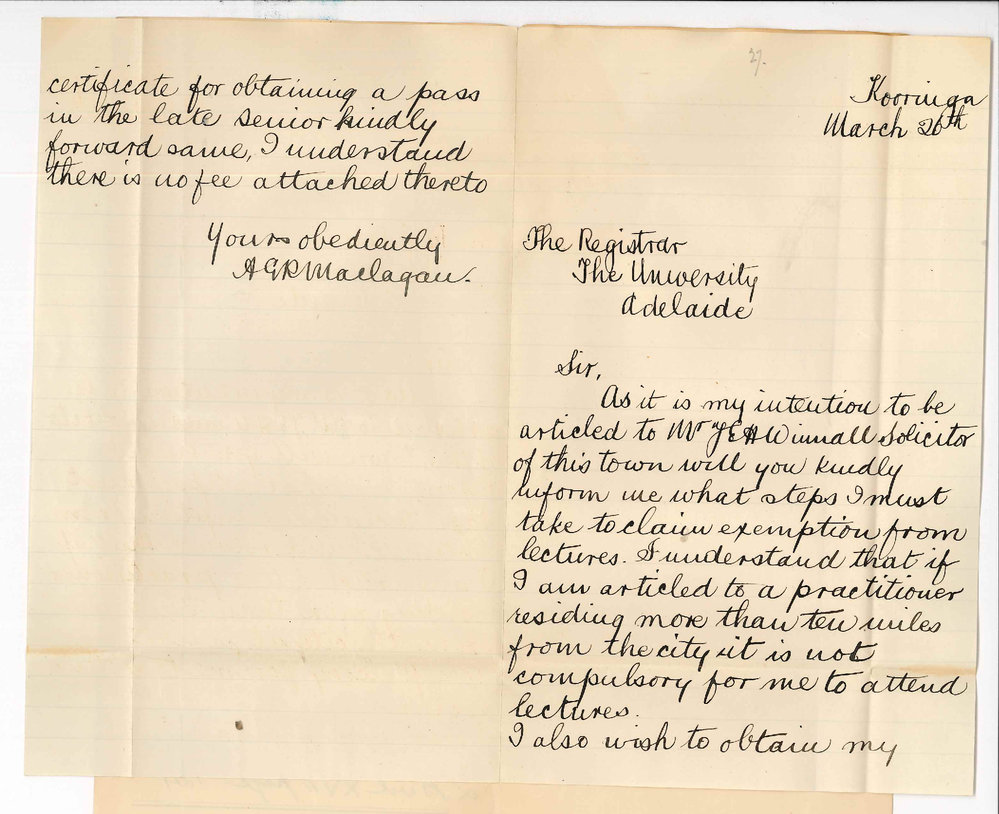 27.
Kooringa
March 26th
The Registrar
The University
Adelaide
Sir,
As it is my intention to be
articled to Mr J E H Winnall Solicitor
of this town will you kindly
inform me what steps I must
take to claim exemption from
lectures. I understand that if
I am articled to a practitioner
residing more than ten miles
from the city it is not
compulsory for me to attend
lectures.
I also wish to obtain my
certificate for obtaining a pass
in the late senior kindly
forward same, I understand
there is no fee attached thereto
Yours obediently
A G R Maclagan.